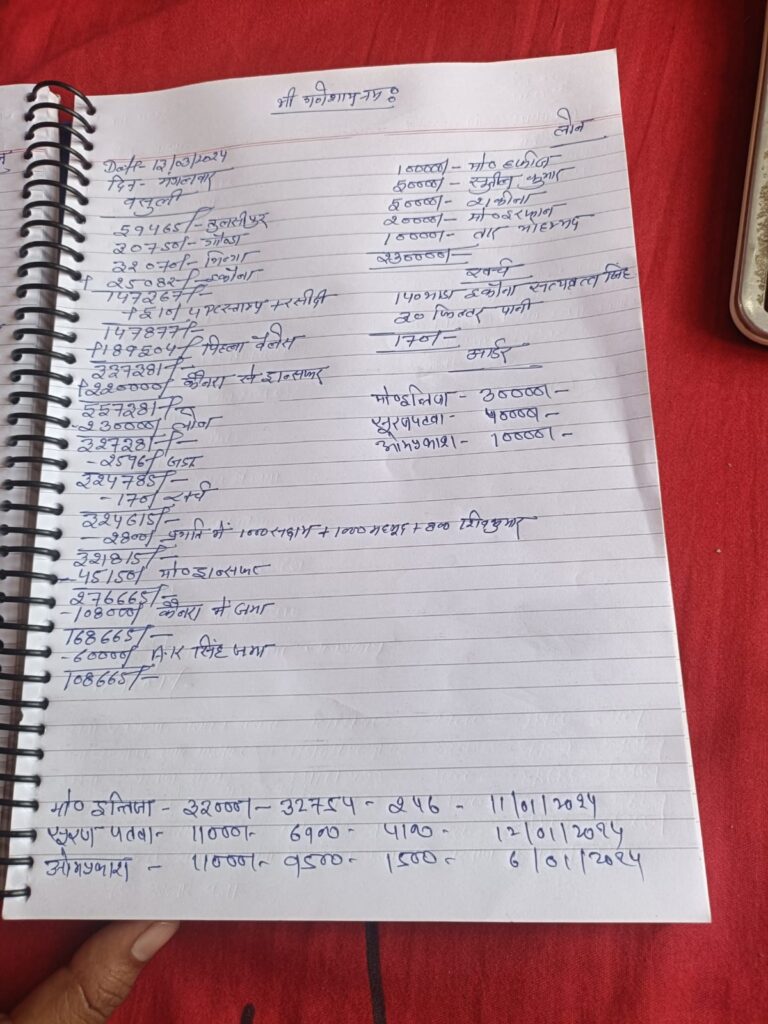 श्री गणेशाय नमः
Date 12/03/2024
दिन - मंगलवार
वसुली
39465/- तुलसीपुर
20750/- गोण्डा
32070/-
+ 25082/- इकौना
147267/-
147877/-
+ 189504/- पिछला बैलेंस
337281/-
+ 220000/- कैनरा से ट्रान्सफर
557281/-
- 230000/- लोन
327281/-
- 2596/-
324785/-
- 170/- खर्च
324615/-
- 2800/- में 1000 सद्दाम + 1000 महमूद + 800 शिवकुमार
321815/-
- 45150/- मो0 ट्रान्सफर
276665/-
- 108000/- कैनरा में जमा
168665/-
- 60000/- A.K सिंह जमा
108665/-
लोन
100000/- मो0 हफीज
50000/- सुशील कुमार
50000/- शकीना
20000/- मो0 इरफान
10000/- तार मोहम्मद
230000/-
खर्च
140 भाडा इकौना सत्यव्रत सिंह
30 फिल्टर पानी
170/-
आर्डर
मो0 इन्तिजा - 30000/-
सूरज पटवा - 10000/-
ओमप्रकाश - 10000/-
मो0 इन्तिजा - 33000/- 32754 - 246 - 11/01/2024
सूरज पटवा - 11000/- 6900 - 4100 - 12/01/2024
ओमप्रकाश - 11000/- 9500 - 1500 - 6/01/2024